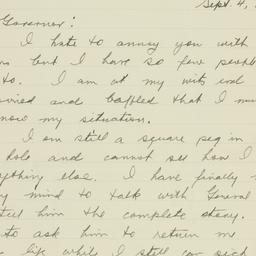 Sept. 4,
Governor:
I hate to annoy you with
but I have so few people
to. I am at my wits end
and baffled that I must
know my situation.
I am still a square peg in
hole and cannot see how I
anything else. I have finally
my mind to talk with General
tell him the complete story.
to ask him to return me
life while I still can pick